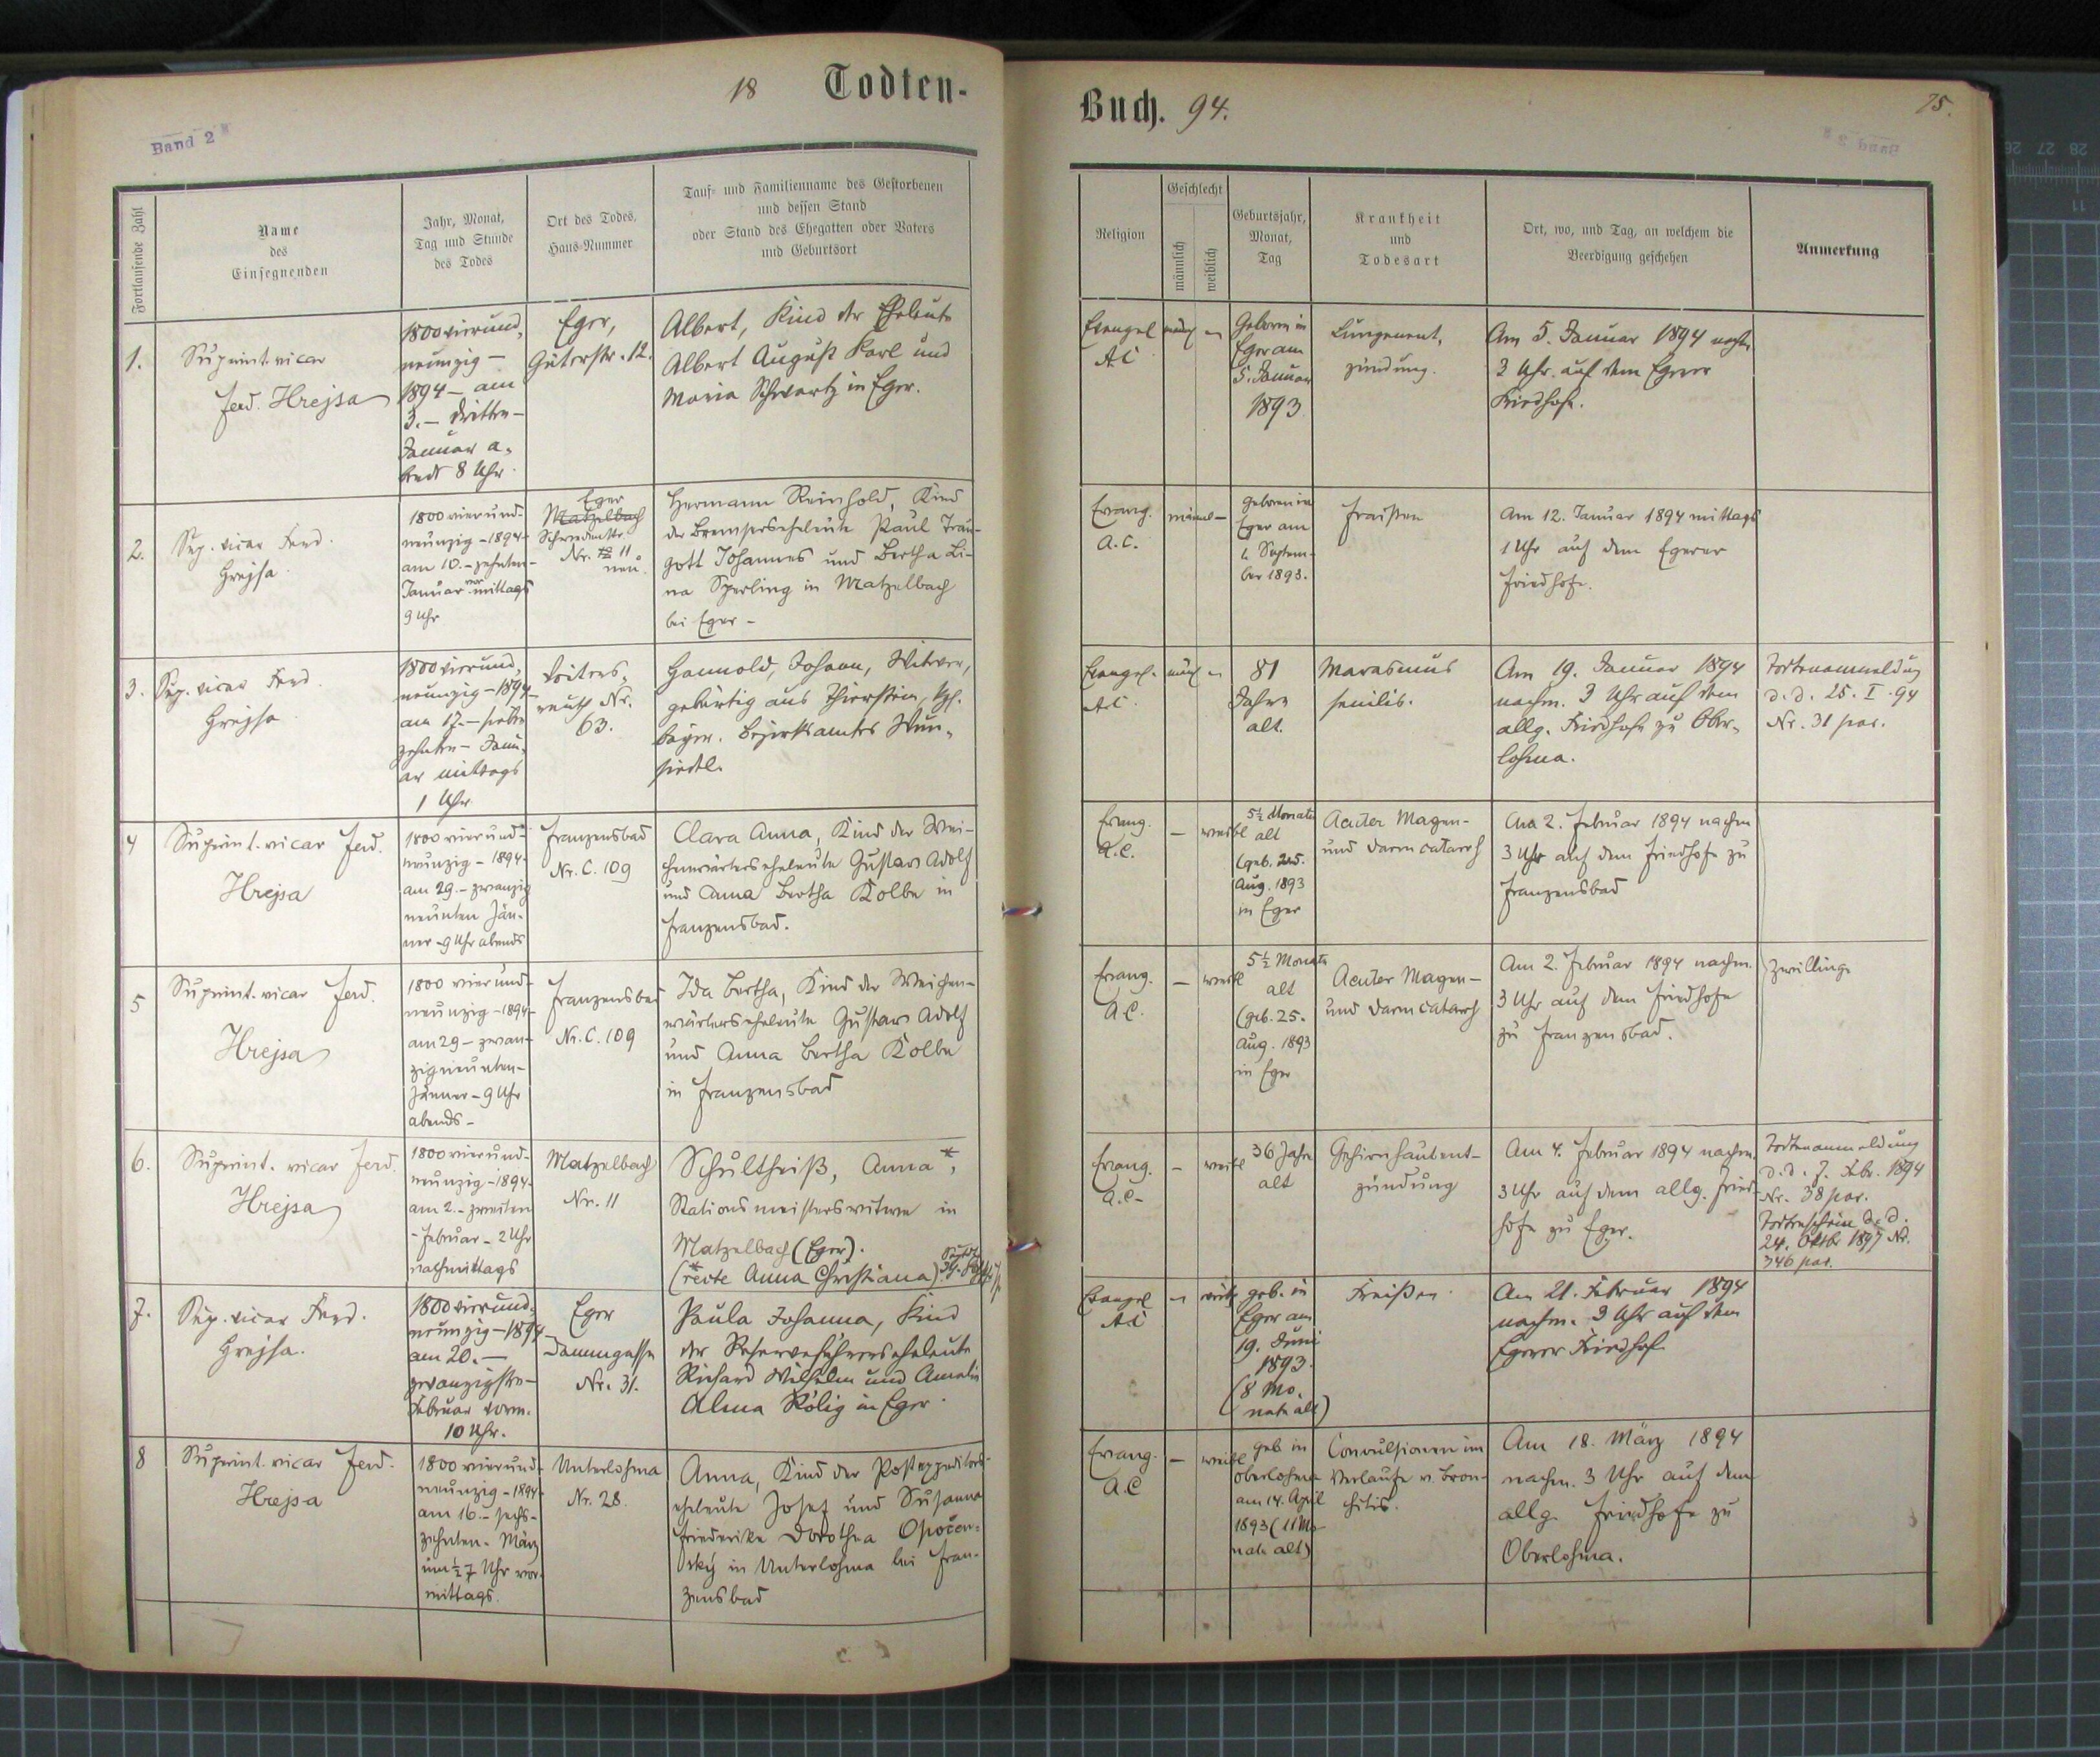 18 Todten-
Band 2
Fortlaufende Zahl
Name
des
Einsegnenden
Jahr, Monat,
Tag und Stunde
des Todes
Ort des Todes,
Haus-Nummer
Tauf- und Familienname des Gestorbenen
und dessen Stand
oder Stand des Ehegatten oder Vaters
und Geburtsort
1.
Suprint. vicar
Ferd. Hrejsa
1800 vierund-
neunzig –
1894 – am
3. – dritten –
Januar a-
bends 8 Uhr.
Eger,
Güterstr. 12.
Albert, Kind der Eheleute
Albert August Karl und
Maria Schwartz in Eger.
2.
Sup. vicar Ferd.
Hrejsa.
1800 vierund-
neunzig – 1894 –
am 10. – zehnten –
Januar vormittags
9 Uhr
Eger
Matzelbach
Nr. 11
neu.
Hermann Reinhold, Kind
der Bremserseheleute Paul Trau-
gott Johannes und Bertha Li-
na Sperling in Matzelbach
bei Eger –
3.
Sup. vicar Ferd.
Hrejsa
1800 vierund-
neunzig – 1894 –
am 17. – sieben
zehnten – Janu-
ar mittags
1 Uhr.
reuth Nr.
63.
Johann, Witwer,
gebürtig aus Thierstein, kgl.
bayer. Bezirksamtes Wun-
siedl.
4
Suprint. vicar Ferd.
Hrejsa
1800 vierund-
neunzig – 1894 –
am 29. – zwanzig
neunten Jän-
ner – 9 Uhr abends
Franzensbad
Nr. C. 109
Clara Anna, Kind der Wei-
chenwärterseheleute Gustav Adolf
und Anna Bertha Kolbe in
Franzensbad.
5
Suprint. vicar Ferd.
Hrejsa
1800 vierund-
neunzig – 1894 –
am 29 – zwan-
zigneunten –
Jänner – 9 Uhr
abends –
Franzensbad
Nr. C. 109
Ida Bertha, Kind der Weichen-
wärterseheleute Gustav Adolf
und Anna Bertha Kolbe
in Franzensbad
6.
Suprint. vicar Ferd.
Hrejsa
1800 vierund-
neunzig – 1894 –
am 2. – zweiten
– Februar – 2 Uhr
nachmittags
Matzelbach
Nr. 11
Schultheiß, Anna*,
Stationsmeisterswitwe in
Matzelbach (Eger).
(*recte Anna Christiana)
7.
Sup. vicar Ferd.
Hrejsa.
1800 vierund-
neunzig – 1894 –
am 20. –
zwanzigsten –
Februar vorm.
10 Uhr.
Eger
Dammgasse
Nr. 31.
Paula Johanna, Kind
der Reserveführerseheleute
Richard Wilhelm und Amalie
Alma Rölig in Eger.
8
Suprint. vicar Ferd.
Hrejsa
1800 vierund-
neunzig – 1894 –
am 16. – sechs-
zehnten – März
um ½ 7 Uhr vor-
mittags.
Unterlohma
Nr. 28.
Anna, Kind der Postexpeditors-
eheleute Josef und Susanna
Friederike Dorothea Opočen-
ský in Unterlohma bei Fran-
zensbad
Buch. 94.
75.
Religion
Geschlecht
männlich
weiblich
Geburtsjahr,
Monat,
Tag
Krankheit
und
Todesart
Ort, wo, und Tag, an welchem die
Beerdigung geschehen
Anmerkung
Evangel
AC
männl –
Geboren in
Eger am
5. Januar
1893
Lungenent-
zündung.
Am 5. Januar 1894 nachm.
3 Uhr auf dem Egerer
Friedhofe.
Evang.
A.C.
männl –
geboren in
Eger am
Septem-
ber 1893.
Fraisen
Am 12. Januar 1894 mittags
1 Uhr auf dem Egerer
Friedhofe.
Evangel.
AC.
männl –
81
Jahre
alt.
Marasmus
senilis.
Am 19. Januar 1894
nachm. 3 Uhr auf dem
allg. Friedhofe zu Ober-
lohma.
Todtenanmeldung
d. d. 25. I. 94
Nr. 31 par.
Evang.
A.C.
– weibl
5½ Monate
alt
(geb. 25.
Aug. 1893
in Eger
Acuter Magen-
und Darmcatarrh
Am 2. Februar 1894 nachm
3 Uhr auf dem Friedhofe zu
Franzensbad
Evang.
A.C.
– weibl
5½ Monate
alt
(geb. 25.
Aug. 1893
in Eger
Acuter Magen-
und Darmcatarrh
Am 2. Februar 1894 nachm.
3 Uhr auf dem Friedhofe
zu Franzensbad.
Zwillinge
Evang.
A.C.
– weibl
36 Jahre
alt
Gehirnhautent-
zündung
Am 4. Februar 1894 nachm.
3 Uhr auf dem allg. Fried-
hofe zu Eger.
Todtenanmeldung
d. d. 7. Febr. 1894
Nr. 38 par.
Todtenschein d. d.
24. Oktbr 1897 Nr.
346 par.
Evangel
AC
– weibl
geb. in
Eger am
19. Juni
1893.
(8 Mo-
nate alt)
Freißen.
Am 21. Februar 1894
nachm. 3 Uhr auf dem
Egerer Friedhof.
Evang.
A.C
– weibl
geb in
Oberlohma
am 14. April
1893 (11 Mo-
nate alt)
Convulsionen im
Verlaufe v. Bron-
chitis.
Am 18. März 1894
nachm. 3 Uhr auf dem
allg. Friedhofe zu
Oberlohma.